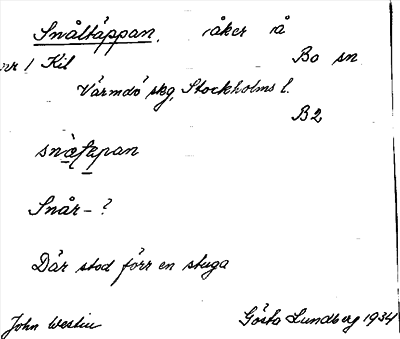 Snåltäppan, åker å
nr 1 Kil Bo sn
Värmdö skg, Stockholms l.
B2
Snår- ?
Där stod förr en stuga
John Westin Gösta Lundberg 1934